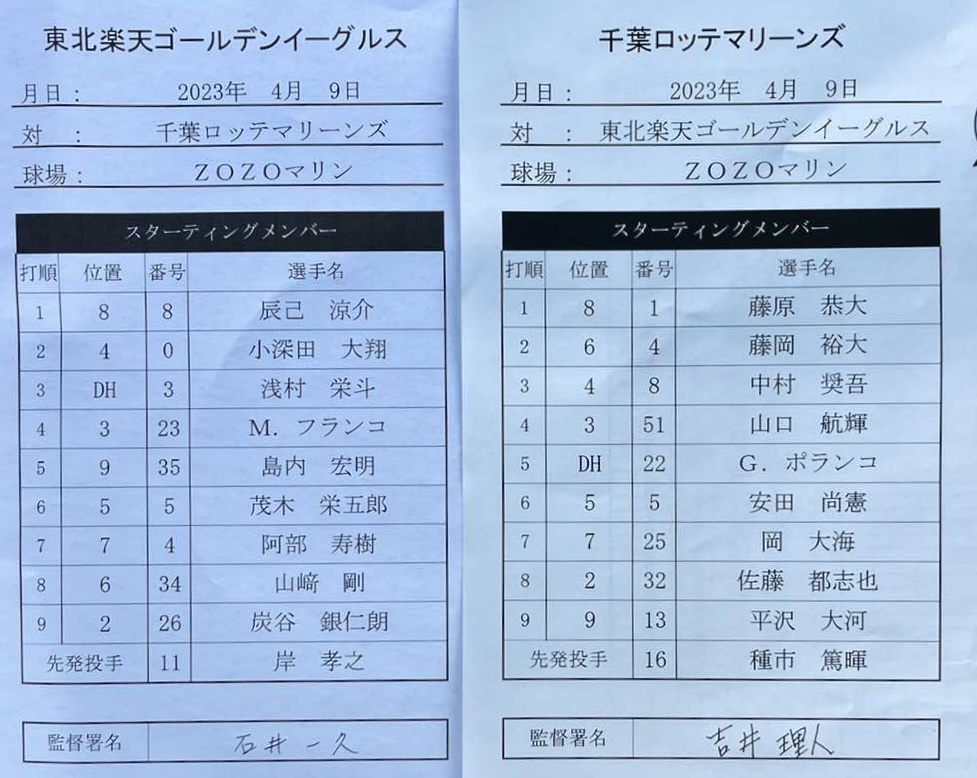 東北楽天ゴールデンイーグルス
月日： 2023年 4月 9日
対 ： 千葉ロッテマリーンズ
球場： ＺＯＺＯマリン
スターティングメンバー
打順 位置 番号 選手名
1 8 8 辰己 涼介
2 4 0 小深田 大翔
3 DH 3 浅村 栄斗
4 3 23 Ｍ．フランコ
5 9 35 島内 宏明
6 5 5 茂木 栄五郎
7 7 4 阿部 寿樹
8 6 34 山﨑 剛
9 2 26 炭谷 銀仁朗
先発投手 11 岸 孝之
監督署名 石井一久
千葉ロッテマリーンズ
月日： 2023年 4月 9日
対 ： 東北楽天ゴールデンイーグルス
球場： ＺＯＺＯマリン
スターティングメンバー
打順 位置 番号 選手名
1 8 1 藤原 恭大
2 6 4 藤岡 裕大
3 4 8 中村 奨吾
4 3 51 山口 航輝
5 DH 22 Ｇ．ポランコ
6 5 5 安田 尚憲
7 7 25 岡 大海
8 2 32 佐藤 都志也
9 9 13 平沢 大河
先発投手 16 種市 篤暉
監督署名 吉井理人